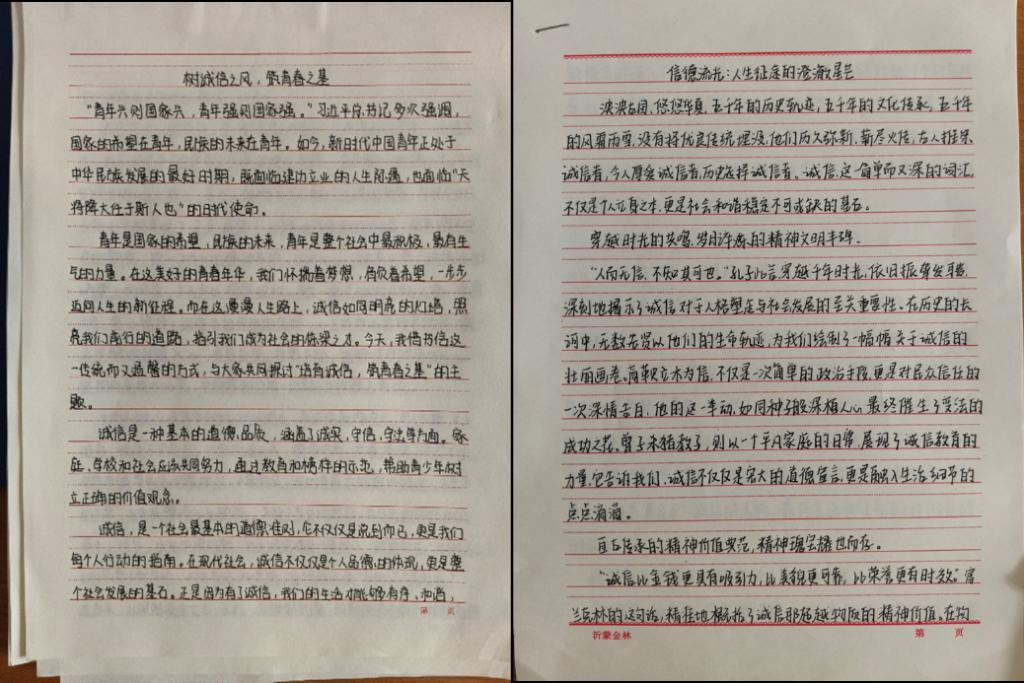 树诚信之风，筑青春之基
“青年兴则国家兴，青年强则国家强。”习近平总书记多次强调，
国家的希望在青年，民族的未来在青年。如今，新时代中国青年正处于
中华民族发展的最好时期，既面临建功立业的人生际遇，也面临“天
将降大任于斯人也”的时代使命。
青年是国家的希望，民族的未来，青年是整个社会中最积极，最有生
气的力量。在这美好的青春年华，我们怀揣着梦想，肩负着希望，一步步
迈向人生的新征程。而在这漫漫人生路上，诚信如同明亮的灯塔，照
亮我们前行的道路，指引我们成为社会的栋梁之才。今天，我借书信这
一传统而又温馨的方式，与大家共同探讨“培育诚信，筑青春之基”的主
题。
诚信是一种基本的道德品质，涵盖了诚实，守信，守法等方面。家
庭，学校和社会应该共同努力，通过教育和榜样的示范，帮助青少年树
立正确的价值观念。
诚信，是一个社会最基本的道德准则，它不仅仅是说到而已，更是我们
每个人行动的指南。在现代社会，诚信不仅仅是个人品德的体现，更是整
个社会发展的基石。正是因为有了诚信，我们的生活才能够有序、和谐，
第 页
信德流光：人生征途的澄澈星芒
泱泱古国，悠悠华夏，五千年的历史轨迹，五千年的文化传承，五千年
的风霜雨雪，没有将优良传统埋没，他们历久弥新，薪尽火传，古人推崇
诚信者，今人厚爱诚信者，历史选择诚信者。诚信，这一简单而又深的词汇，
不仅是个人立身之本，更是社会和谐稳定不可或缺的基石。
穿越时光的共鸣，岁月淬炼的精神文明丰碑。
“人而无信，不知其可也。”孔子此言，穿越千年时光，依旧振聋发聩，
深刻地揭示了诚信对于人格塑造与社会发展的至关重要性。在历史的长
河中，无数先贤以他们的生命轨迹，为我们绘制了一幅幅关于诚信的
壮丽画卷。商鞅立木为信，不仅是一次简单的政治手段，更是对民众信任的
一次深情告白，他的这一举动，如同种子般深植人心，最终催生了变法的
成功之花。曾子杀猪教子，则以一个平凡家庭的日常，展现了诚信教育的
力量，它告诉我们，诚信不仅仅是宏大的道德宣言，更是融入生活细节的
点点滴滴。
亘古传承的精神价值典范，精神瑰宝播也而存。
“诚信比金钱更具有吸引力，比美貌更可靠，比荣誉更有时效。”富
兰克林的这句话，精准地概括了诚信那超越物质的精神价值。在物
沂蒙金林 第 页